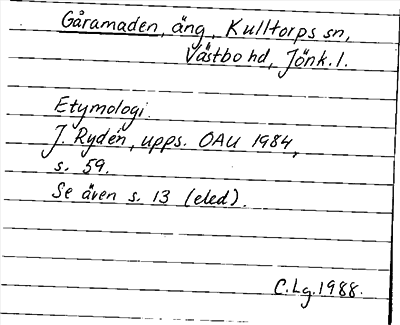 Gåramaden, äng, Kulltorps sn,
Västbo hd, Jönk. l.
Etymologi.
J. Rydén, upps. OAU 1984,
s. 59.
Se även s. 13 (eled).
C.Lg. 1988.